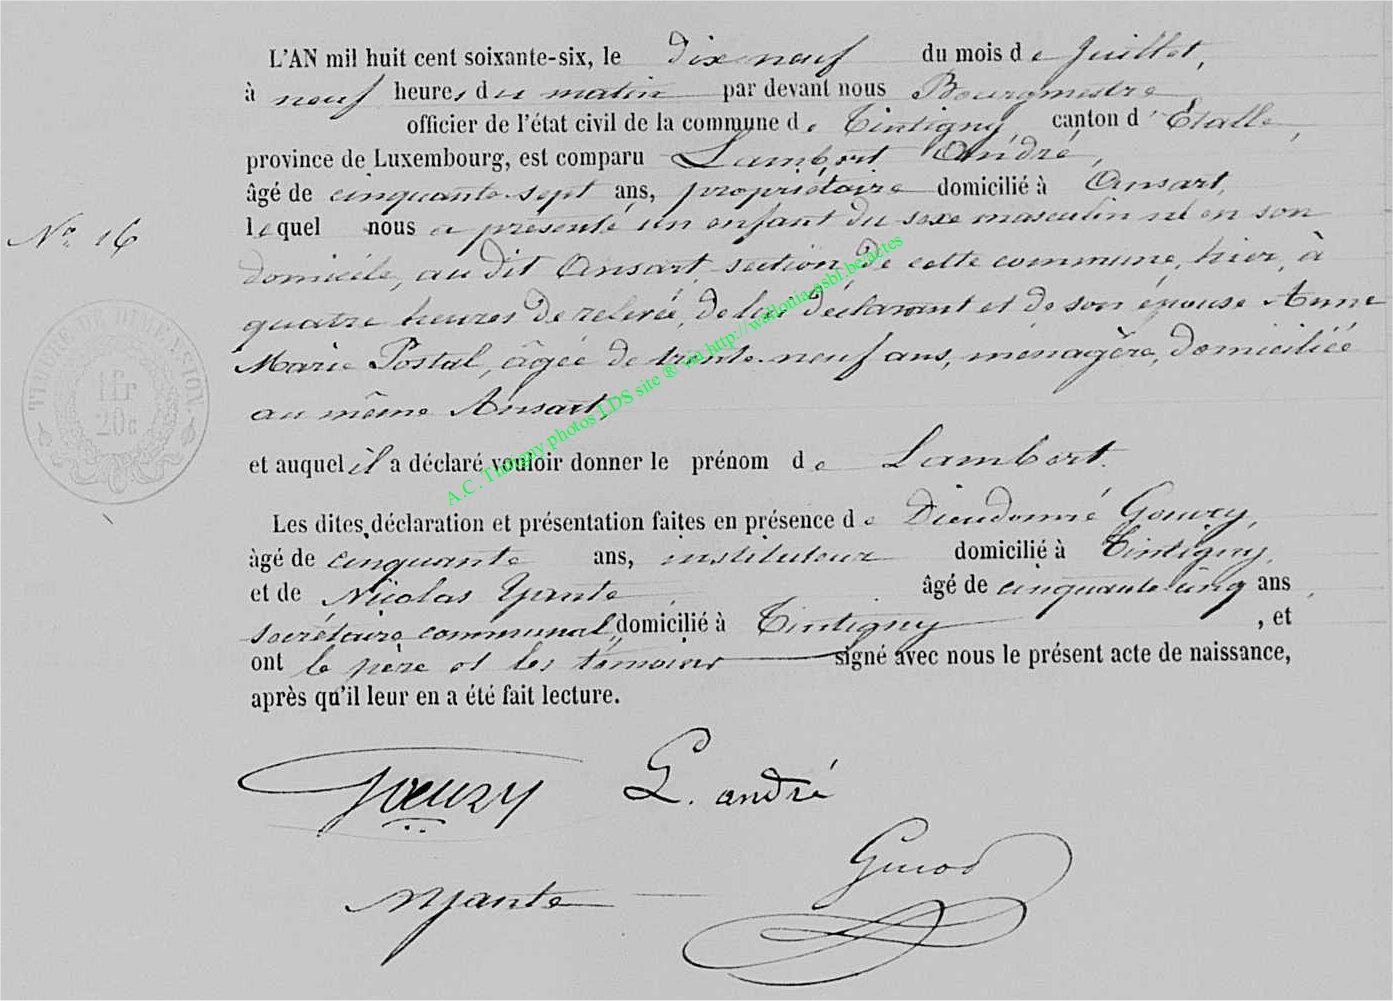 L'AN mil huit cent soixante-six, le dix neuf du mois de Juillet,
à neuf heures du matin par devant nous Bourgmestre
officier de l'état civil de la commune de Tintigny, canton d'Etalle,
province de Luxembourg, est comparu Lambert André,
âgé de cinquante-sept ans, propriétaire domicilié à Ansart,
lequel nous a présenté un enfant du sexe masculin né en son
No. 16
domicile, au dit Ansart section de cette commune, hier, à
quatre heures de relevée, de lui déclarant et de son épouse Anne
Marie Postal, âgée de trente-neuf ans, ménagère, domiciliée
au même Ansart,
TIMBRE DE DIMENSION.
1fr
20c
A.C. Tintigny photos LDS site ® via http://wallonia-asbl.be/actes
et auquel il a déclaré vouloir donner le prénom de Lambert.
Les dites déclaration et présentation faites en présence de Dieudonné Goury,
âgé de cinquante ans, instituteur domicilié à Tintigny,
et de Nicolas Yante, âgé de cinquante cinq ans,
secrétaire communal, domicilié à Tintigny, et
ont le père et les témoins signé avec nous le présent acte de naissance,
après qu'il leur en a été fait lecture.
L. andré
NYante